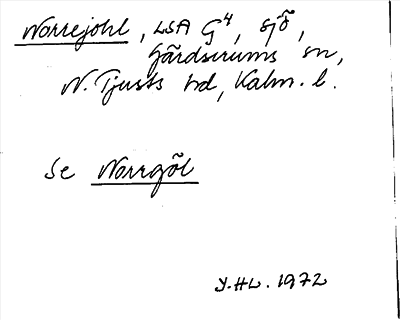 Norrejohl, LSA G⁴, sjö,
Gärdserums sn,
N. Tjusts hd, Kalm. l.
Se Norrgöl
Y.HL. 1972